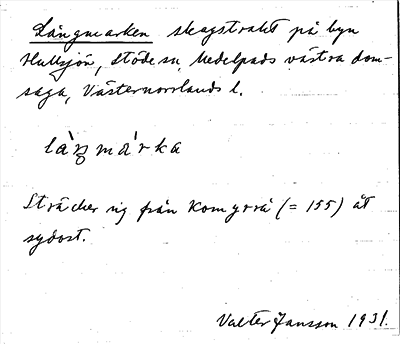 Långmarken skogstrakt på byn
Hullsjön, Stöde sn, Medelpads västra dom-
saga, Västernorrlands l.
làŋmárka
Sträcker sig från Komyrrå (= 155) åt
sydost.
Valter Jansson 1931.